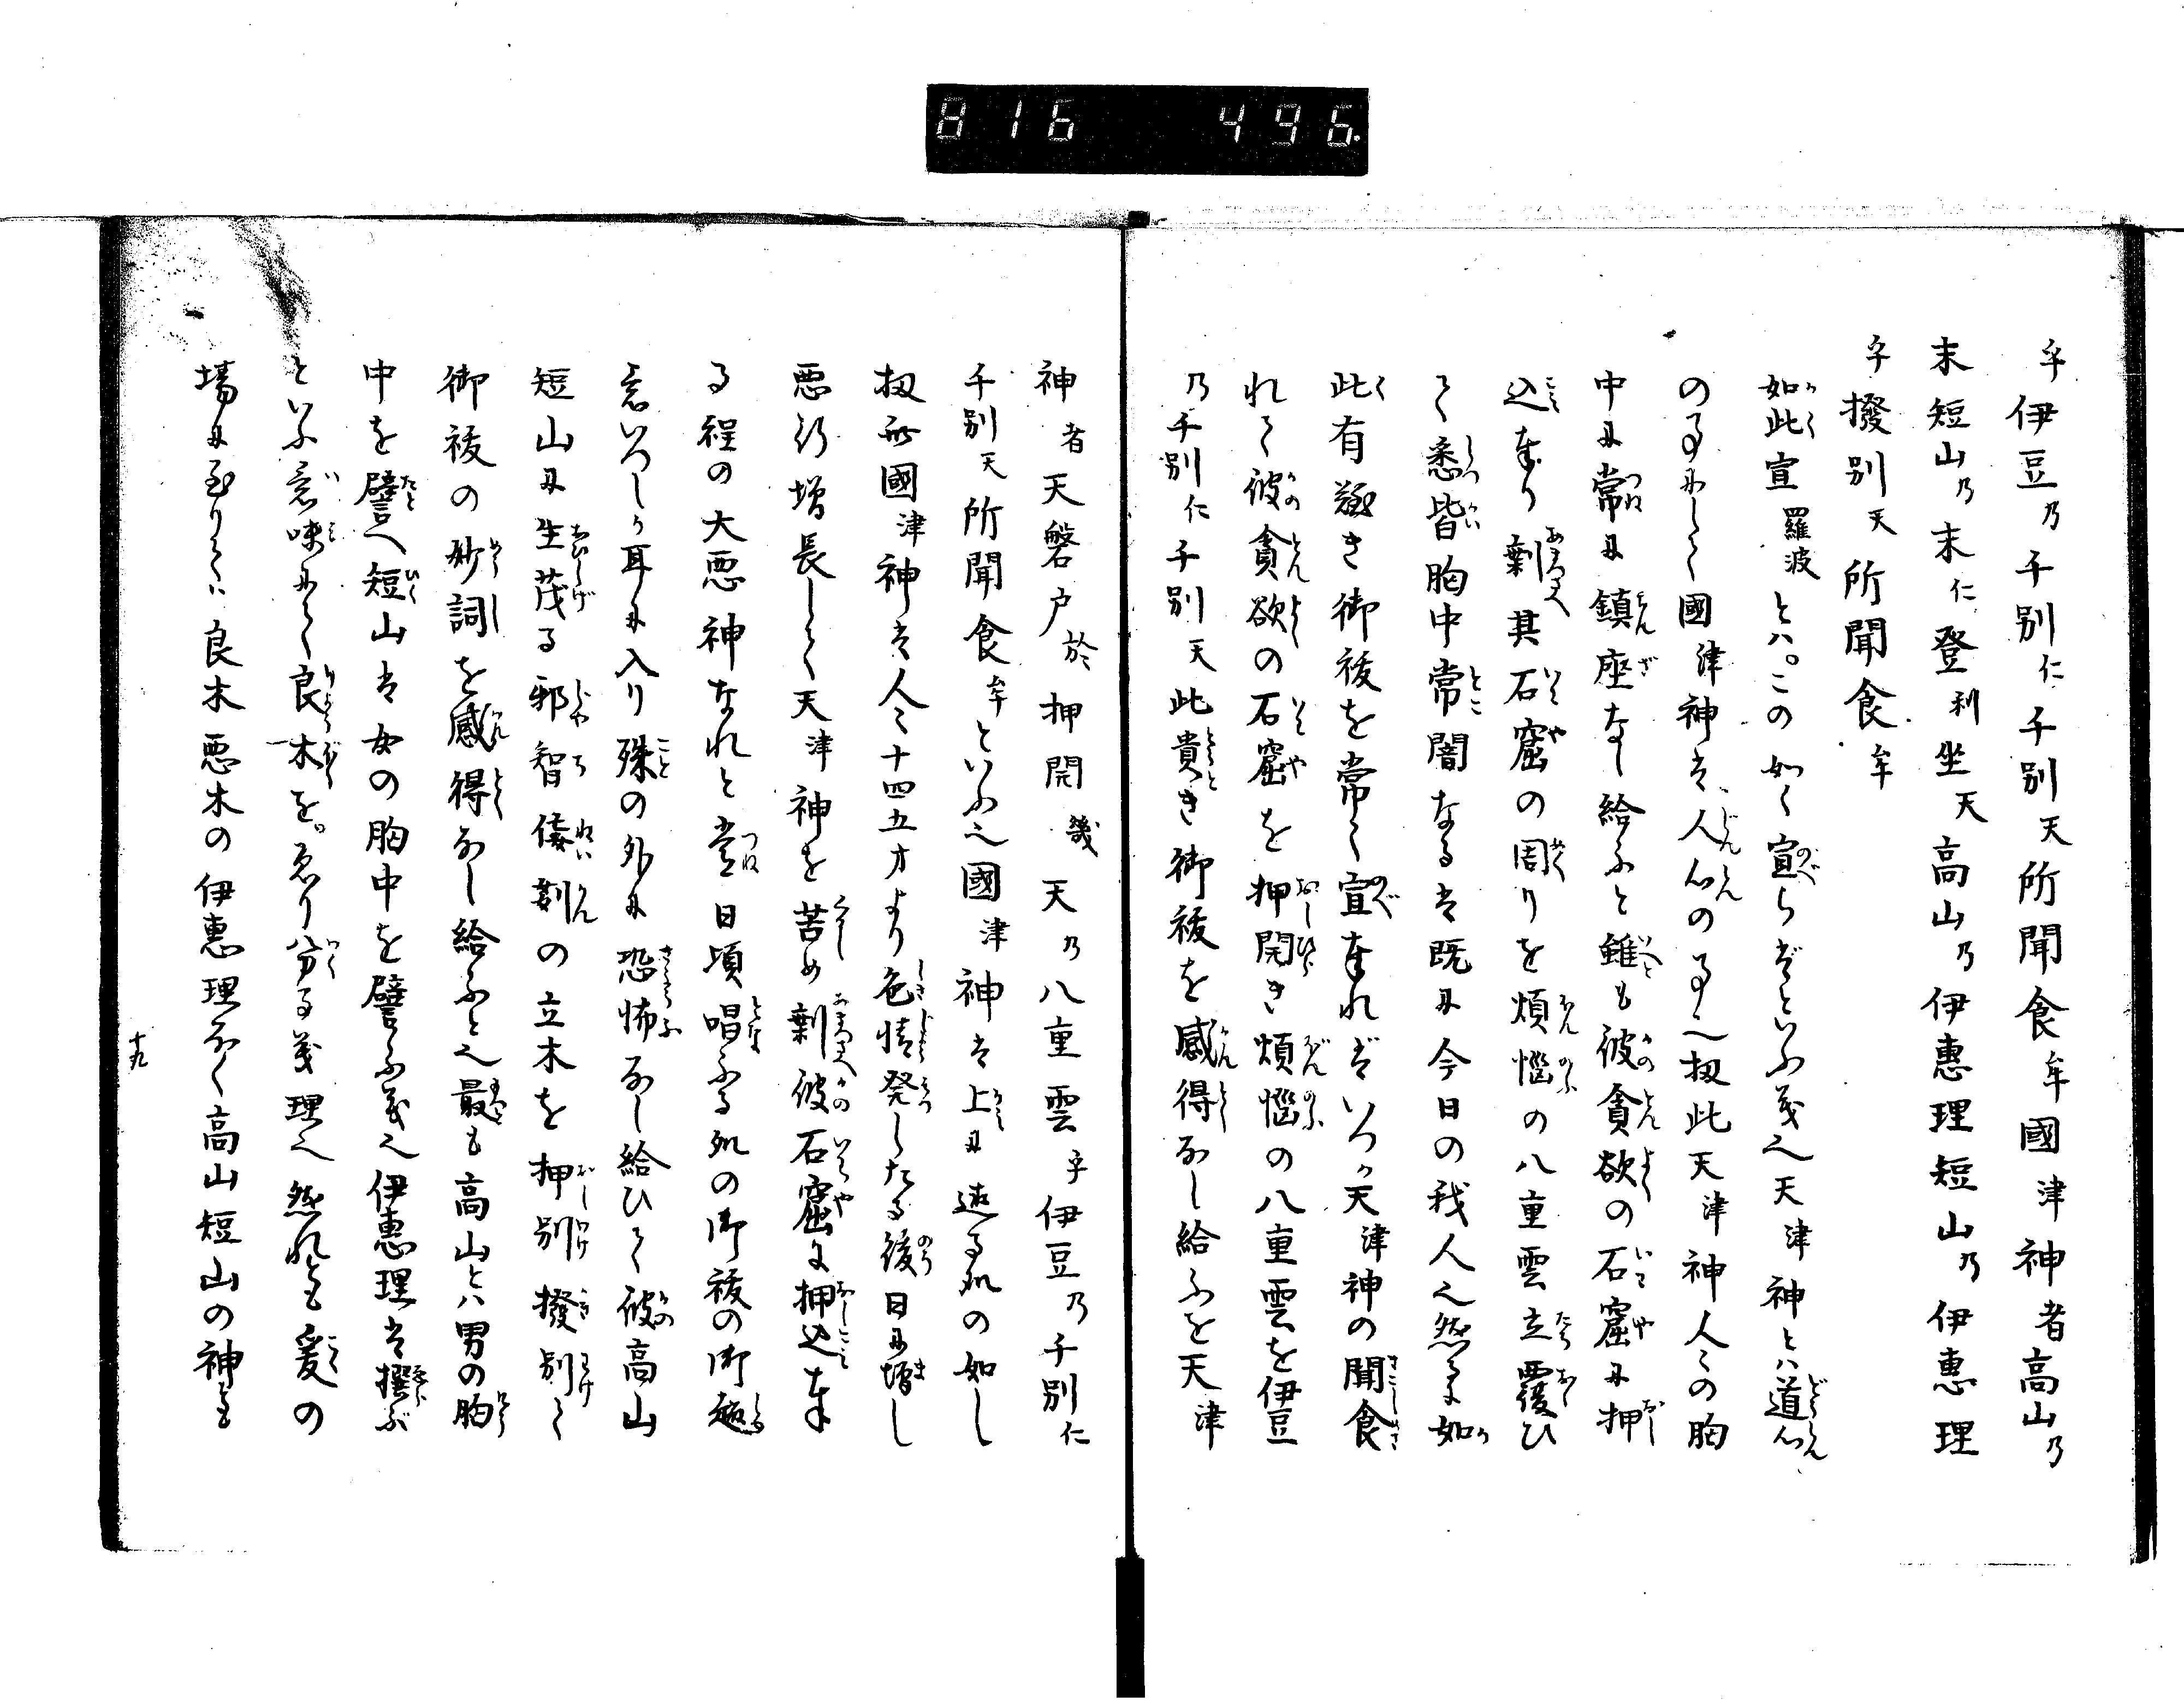 816 496.
乎伊豆乃千別仁千別天所聞食牟國津神者高山乃
末短山乃末仁登利坐天高山乃伊惠理短山乃伊惠理
乎撥別天所聞食牟
如此宣羅波とハ。この如く宣らバといふ義也天津神とハ道心
の事にして國津神は人心の事也扨此天津神人々の胸
中に常に鎮座なし給ふと雖も彼貪欲の石窟に押
込奉り剰其石窟の周りを煩悩の八重雲立覆ひ
て悉皆胸中常闇なるは既に今日の我人也然るに如
此有難き御祓を常々宣奉れバいつか天津神の聞食
れて彼貪欲の石窟を押開き煩悩の八重雲を伊豆
乃千別仁千別天此貴き御祓を感得なし給ふを天津
神者天磐戸於押開幾天乃八重雲乎伊豆乃千別仁
千別天所聞食牟といふ也國津神は上に述る処の如し
扨亦國津神は人々十四五才より色情発したる後日に増し
悪行増長して天津神を苦め剰彼石窟に押込奉
る程の大悪神なれと常日頃唱ふる処の御祓の御
意いつしか耳に入り殊の外に恐怖なし給ひて彼高山
短山に生茂る邪智佞の立木を押別撥別て
御祓の妙詞を感得なし給ふと也最も高山とハ男の胸
中を譬へ短山は女の胸中を譬ふ義也伊惠理は撰ぶ
といふ意味にて良木を。ゑり分る義理也然れとも爰の
場に至りてハ良木悪木の伊惠理なく高山短山の神も
十九